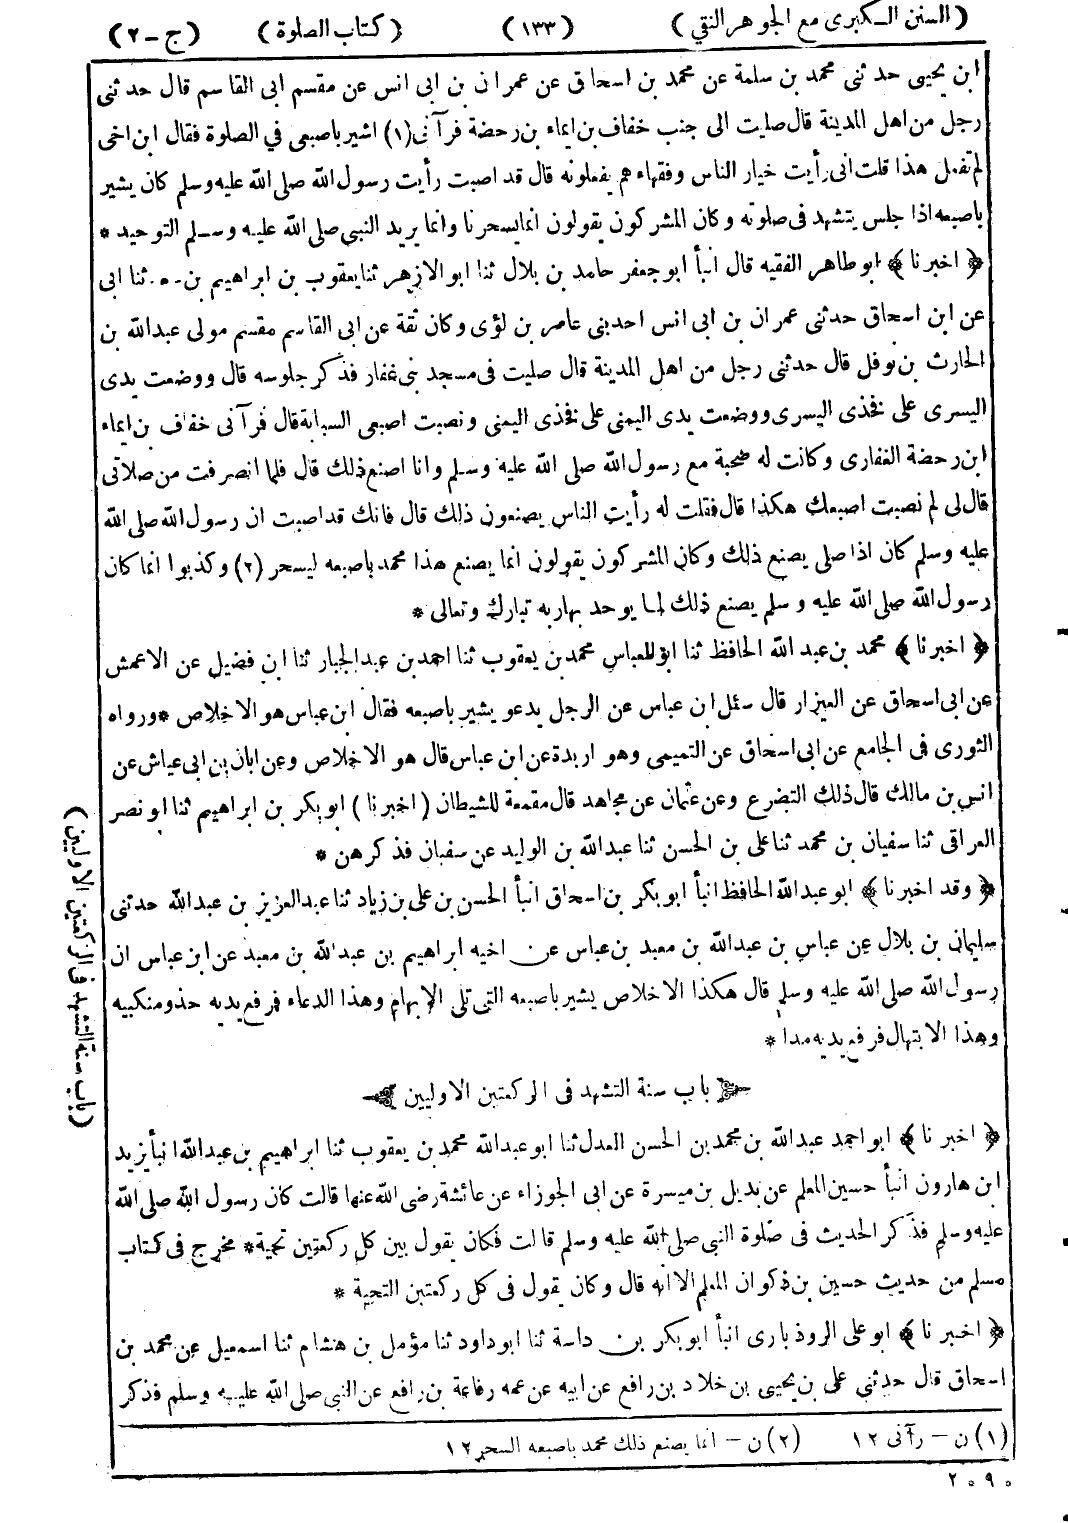 (السنن الكبرى مع الجوهر النقي) (١٣٣) (كتاب الصلوة) (ج-٢)
ابن يحيى حدثنى محمد بن سلمة عن محمد بن اسحاق عن عمران بن ابى انس عن مقسم ابى القاسم قال حدثنى
رجل من اهل المدينة قال صليت الى جنب خفاف بن ايماء بن رحضة فرآنى(١) اشير باصبعى في الصلوة فقال ابن اخى
لم تفعل هذا قلت انى رأيت خيار الناس وفقهاءهم يفعلونه قال قد اصبت رأيت رسول الله صلى الله عليه وسلم كان يشير
باصبعه اذا جلس يتشهد فى صلوته وكان المشركون يقولون انما يسحرنا وانما يريد النبي صلى الله عليه وسلم التوحيد *
﴿ اخبرنا ﴾ ابو طاهر الفقيه قال انبأ ابو جعفر حامد بن بلال ثنا ابو الازهر ثنا يعقوب بن ابراهيم بن ثنا ابى
عن ابن اسحاق حدثنى عمران بن ابى انس احد بنى عامر بن لؤى وكان ثقة عن ابى القاسم مقسم مولى عبدالله بن
الحارث بن نوفل قال حدثنى رجل من اهل المدينة قال صليت فى مسجد بنى غفار فذكر جلوسه قال ووضعت يدى
اليسرى على فخذى اليسرى ووضعت يدى اليمنى على فخذى اليمنى ونصبت اصبعى السبابة قال فرآنى خفاف بن ايماء
ابن رحضة الغفارى وكانت له صحبة مع رسول الله صلى الله عليه وسلم وانا اصنع ذلك قال فلما انصرفت من صلاتى
قال لى لم نصبت اصبعك هكذا قال فقلت له رأيت الناس يصنعون ذلك قال فانك قد اصبت ان رسول الله صلى الله
عليه وسلم كان اذا صلى يصنع ذلك وكان المشركون يقولون انما يصنع هذا محمد باصبعه ليسحر (٢) وكذبوا انما كان
رسول الله صلى الله عليه وسلم يصنع ذلك لما يوحد بها ربه تبارك وتعالى *
﴿ اخبرنا ﴾ محمد بن عبد الله الحافظ ثنا ابو العباس محمد بن يعقوب ثنا احمد بن عبد الجبار ثنا ابن فضيل عن الاعمش
عن ابى اسحاق عن العيزار قال سئل ابن عباس عن الرجل يدعو يشير باصبعه فقال ابن عباس هو الاخلاص * ورواه
الثورى فى الجامع عن ابى اسحاق عن التميمى وهو اربدة عن ابن عباس قال هو الاخلاص وعن ابان بن ابى عياش عن
انس بن مالك قال ذلك التضرع وعن عثمان عن مجاهد قال مقمعة للشيطان (اخبرنا) ابو بكر بن ابراهيم ثنا ابو نصر
العراقى ثنا سفيان بن محمد ثنا على بن الحسن ثنا عبدالله بن الوليد عن سفيان فذكرهن *
﴿ وقد اخبرنا ﴾ ابو عبدالله الحافظ انبأ ابو بكر بن اسحاق انبأ الحسن بن على بن زياد ثنا عبدالعزيز بن عبدالله حدثنى
سليمان بن بلال عن عباس بن عبدالله بن معبد بن عباس عن اخيه ابراهيم بن عبدالله بن معبد عن ابن عباس ان
رسول الله صلى الله عليه وسلم قال هكذا الاخلاص يشير باصبعه التى تلى الابهام وهذا الدعاء فرفع يديه حذو منكبيه
وهذا الابتهال فرفع يديه مدا *
باب سنة التشهد فى الركعتين الاوليين
﴿ اخبرنا ﴾ ابو احمد عبدالله بن محمد بن الحسن العدل ثنا ابو عبدالله محمد بن يعقوب ثنا ابراهيم بن عبدالله انبأ يزيد
ابن هارون انبأ حسين المعلم عن بديل بن ميسرة عن ابى الجوزاء عن عائشة رضى الله عنها قالت كان رسول الله صلى الله
عليه وسلم فذكر الحديث فى صلوة النبي صلى الله عليه وسلم قالت فكان يقول بين كل ركعتين تحية * مخرج فى كتاب
مسلم من حديث حسين بن ذكوان المعلم الا انه قال وكان يقول فى كل ركعتين التحية *
﴿ اخبرنا ﴾ ابو على الروذبارى انبأ ابو بكر بن داسة ثنا ابو داود ثنا مؤمل بن هشام ثنا اسمعيل عن محمد بن
اسحاق قال حدثني على بن يحيى بن خلاد بن رافع عن ابيه عن عمه رفاعة بن رافع عن النبي صلى الله عليه وسلم فذكر
(١) ن - رآنى ١٢ (٢) ن - انما يصنع ذلك محمد باصبعه السحر ١٢
٢٠٩٠
(باب سنة التشهد فى الركعتين الاوليين)